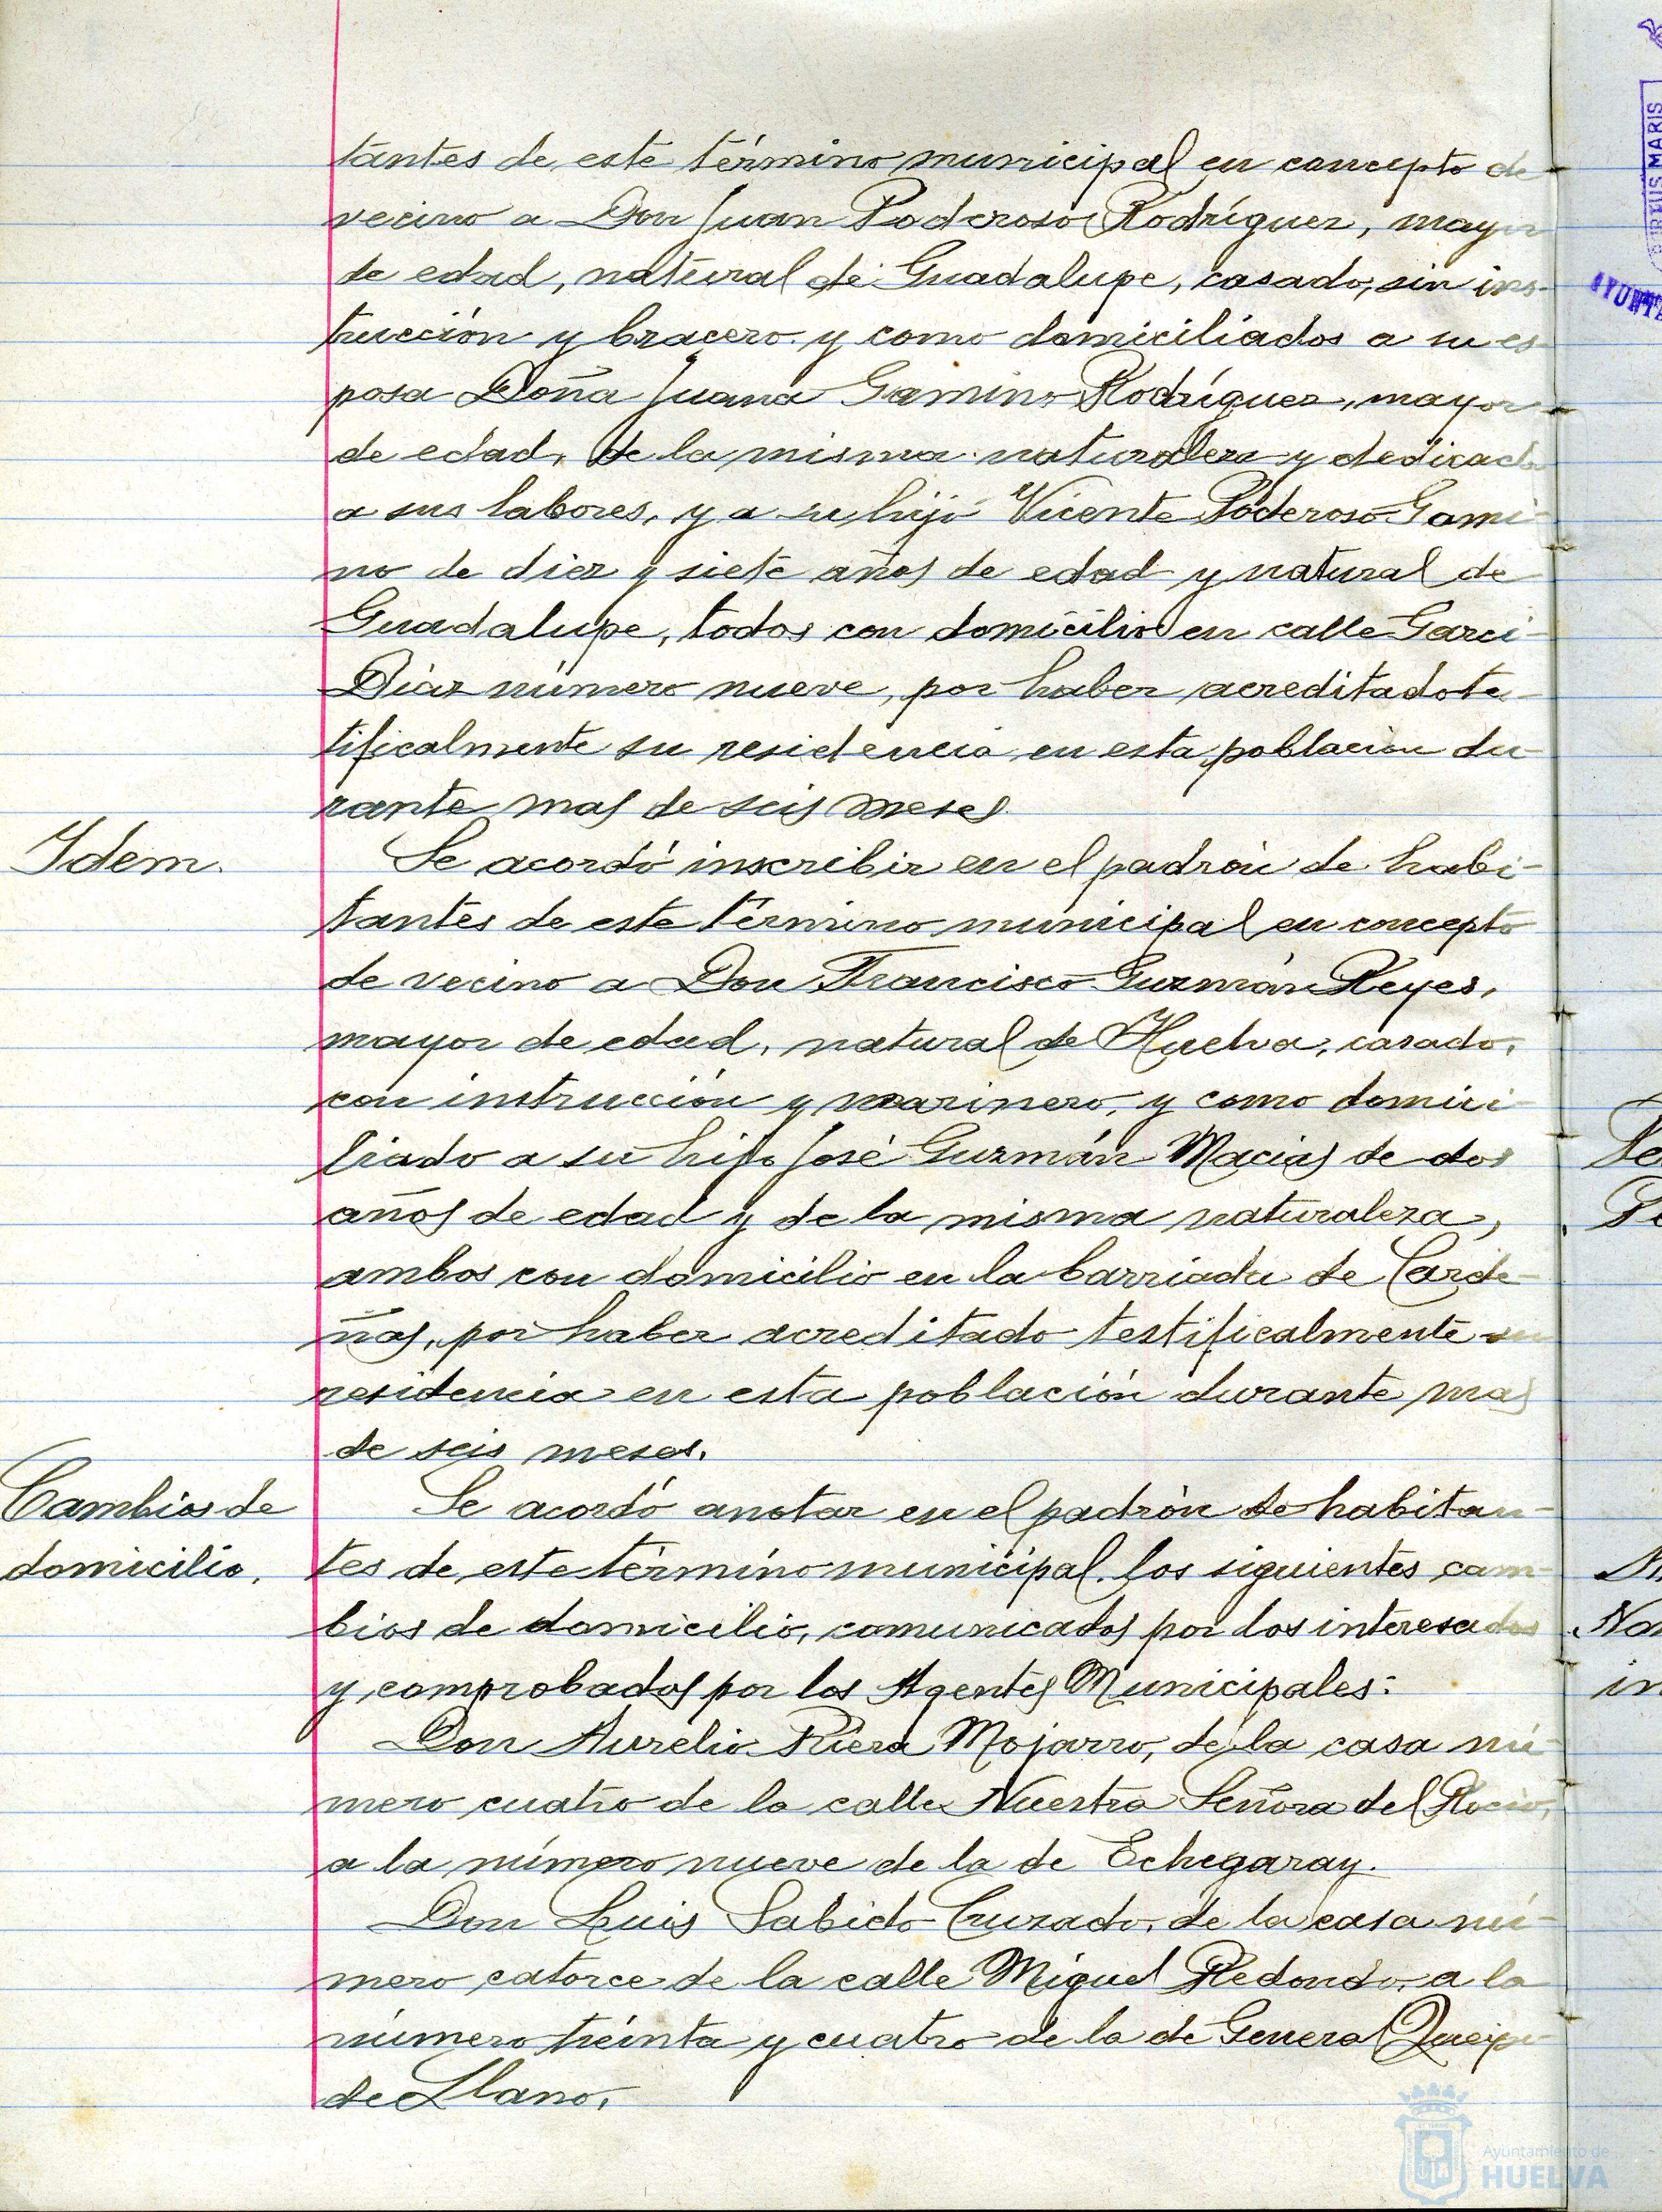 tantes de este término municipal en concepto de
vecino a Don Juan Poderoso Rodríguez, mayor
de edad, natural de Guadalupe, casado, sin ins-
trucción y bracero y como domiciliados a su es-
posa Doña Juana Gamino Rodríguez, mayor
de edad, de la misma naturaleza y dedicada
a sus labores, y a su hijo Vicente Poderoso Gami-
no de diez y siete años de edad y natural de
Guadalupe, todos con domicilio en calle Garci-
Díaz número nueve, por haber acreditado te-
tificalmente su residencia en esta población du-
rante mas de seis meses.
Idem.
Se acordó inscribir en el padrón de habi-
tantes de este término municipal en concepto
de vecino a Don Francisco Guzmán Reyes,
mayor de edad, natural de Huelva, casado,
con instrucción y marinero, y como domici-
liado a su hijo José Guzmán Macias de dos
años de edad y de la misma naturaleza,
ambos con domicilio en la barriada de Carde-
ñas, por haber acreditado testificalmente su
residencia en esta población durante mas
de seis meses.
Cambios de
domicilio.
Se acordó anotar en el padrón de habitan-
tes de este término municipal, los siguientes cam-
bios de domicilio, comunicados por los interesados
y comprobados por los Agentes Municipales:
Don Aurelio Riera Mojarro, de la casa nú-
mero cuatro de la calle Nuestra Señora del Rocio,
a la número nueve de la de Echegaray.
Don Luis Sabido Cruzado, de la casa nú-
mero catorce de la calle Miguel Redondo, a la
número treinta y cuatro de la de General Queipo
de Llano.
Ayuntamiento de
HUELVA